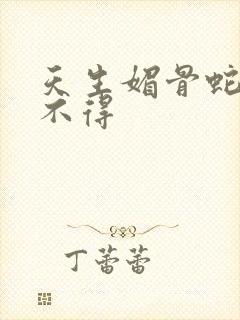 天生媚骨蛇
不得
丁蕾蕾